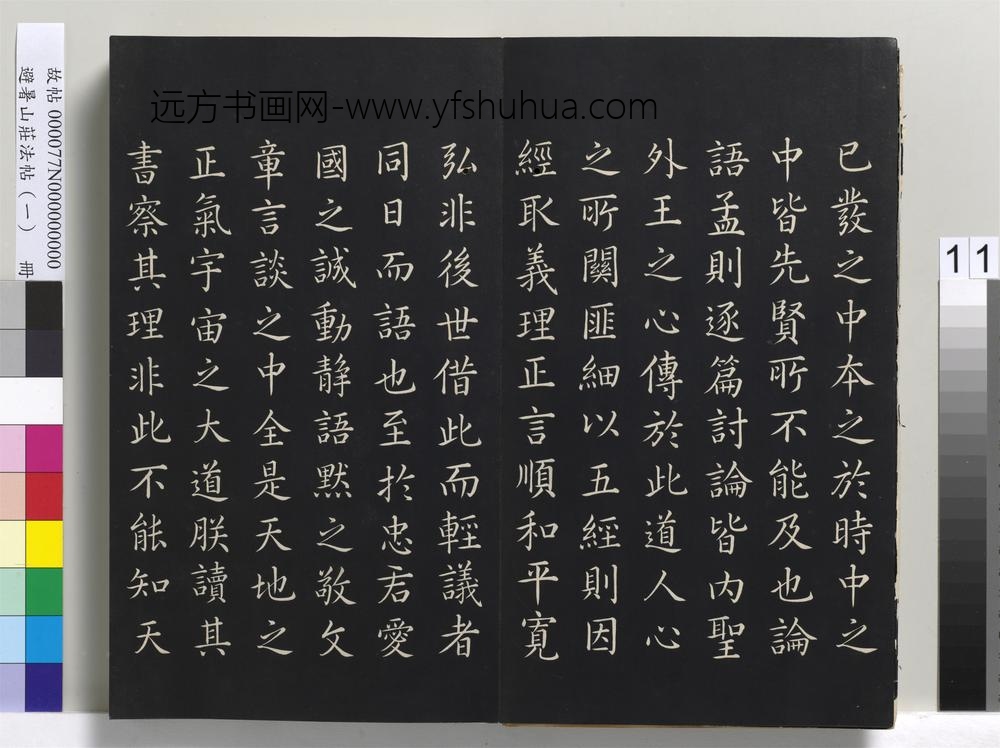 已發之中本之於時中之
中皆先賢所不能及也論
語孟則逐篇討論皆內聖
外王之心傳於此道人心
之所關匪細以五經則因
經取義理正言順和平寬
弘非後世借此而輕議者
同日而語也至於忠君愛
國之誠動靜語默之敬文
章言談之中全是天地之
正氣宇宙之大道朕讀其
書察其理非此不能知天
远方书画网-www.yfshuhua.com
故帖000077N000000000
避暑山莊法帖(一) 冊
11